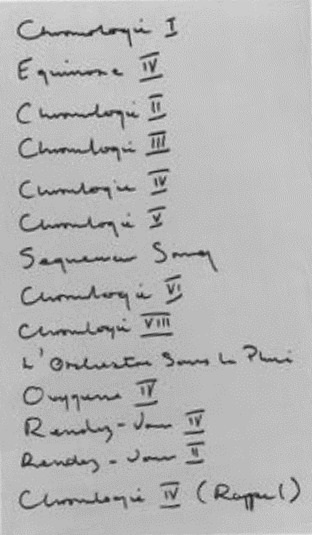 Chronologie I
Equinoxe IV
Chronologie II
Chronologie III
Chronologie IV
Chronologie V
Sequencer Song
Chronologie VI
Chronologie VIII
L'Orchestre Sous La Pluie
Oxygene IV
Rendez-Vous IV
Rendez-Vous II
Chronologie IV (Rappel)